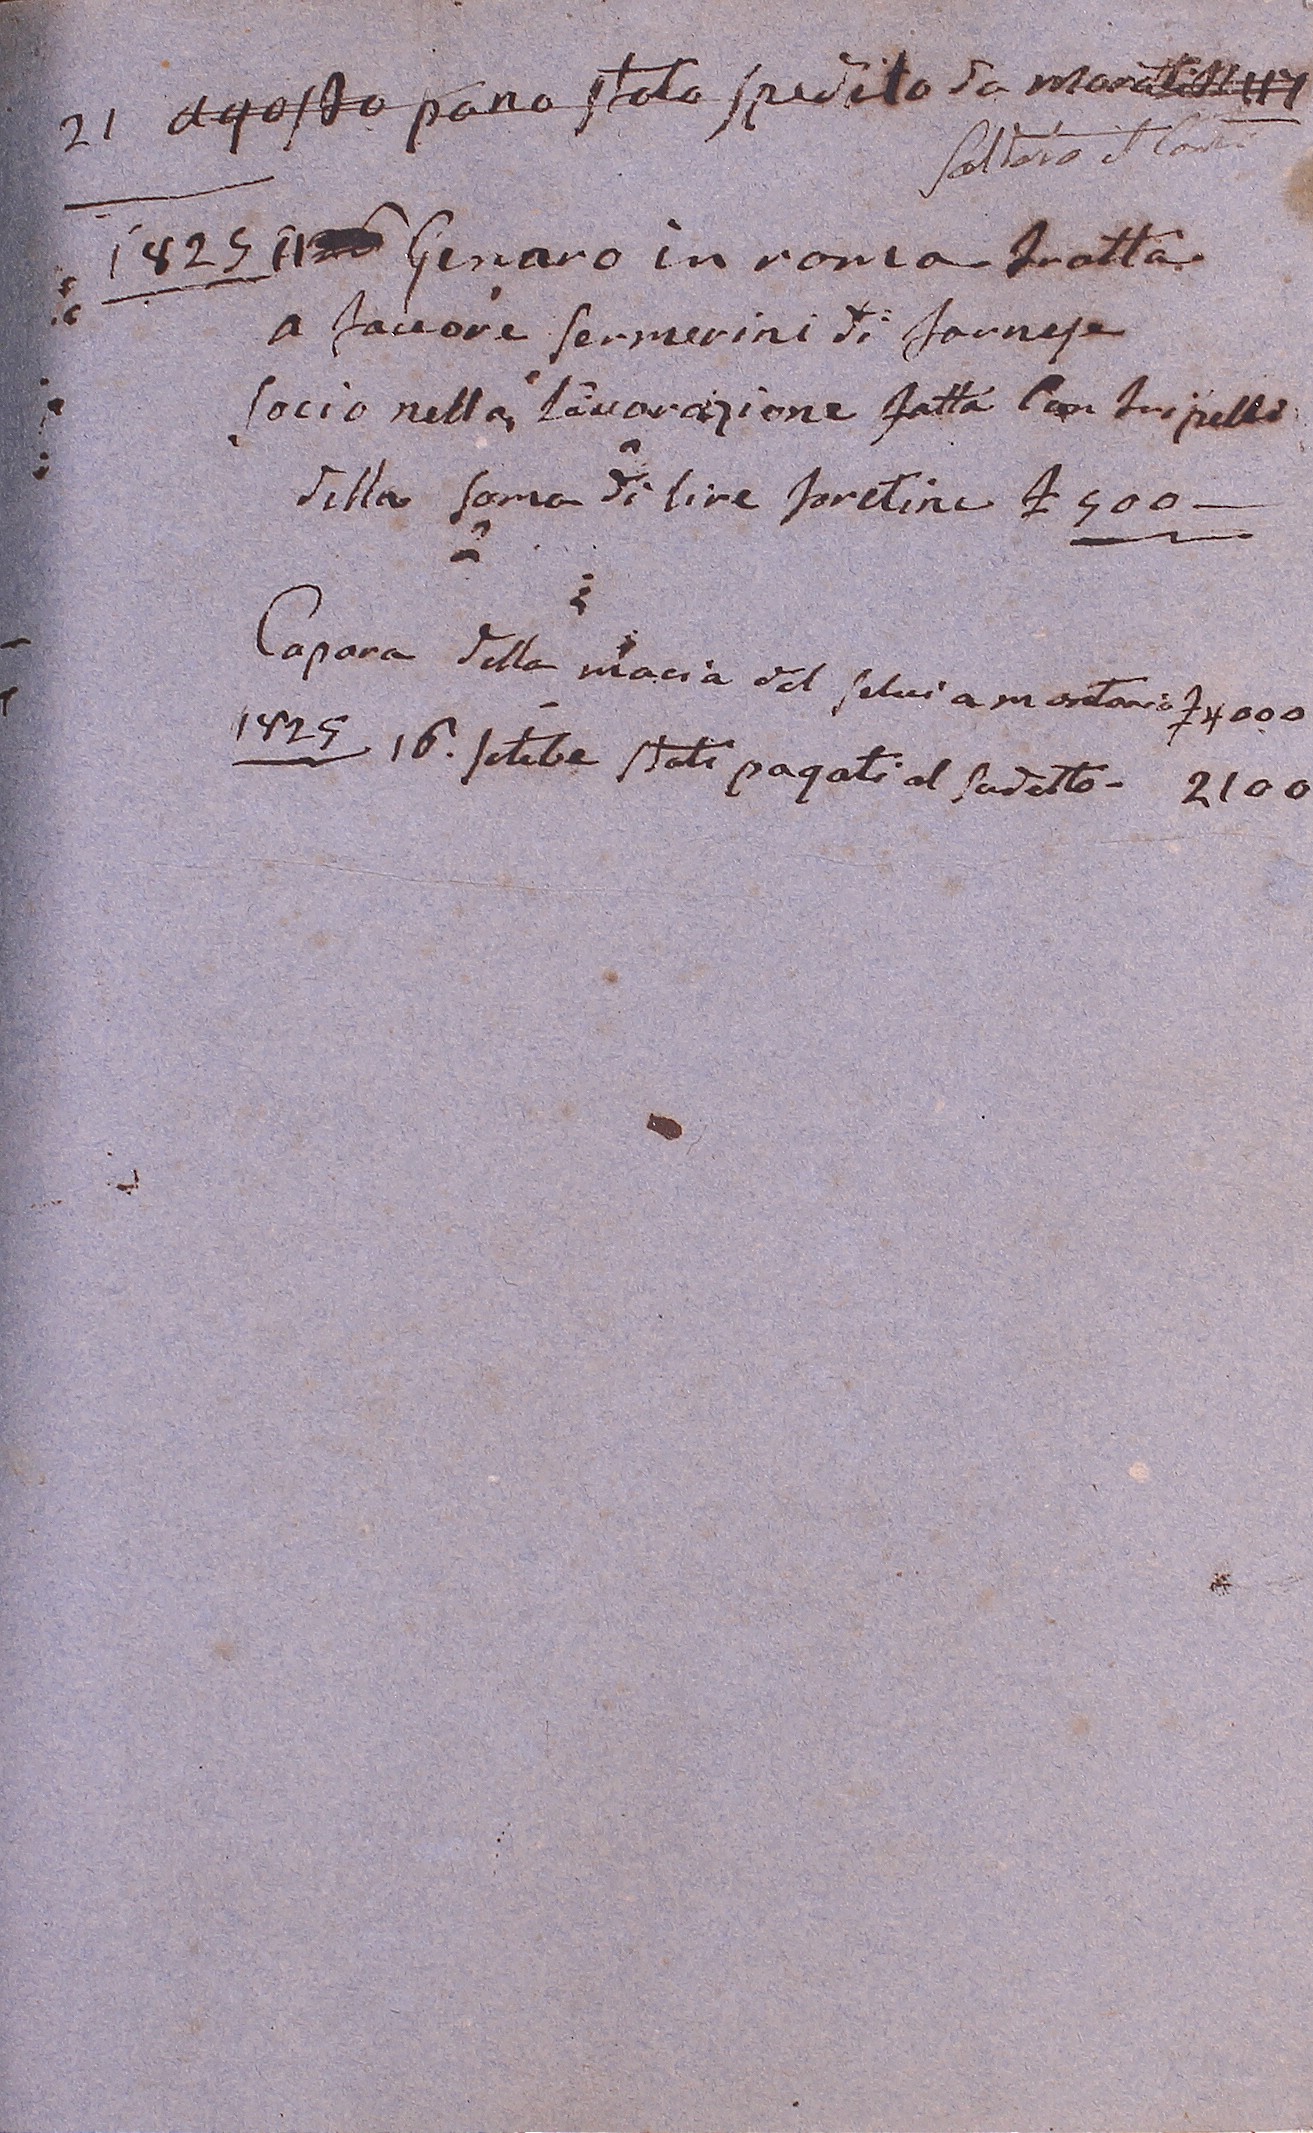 21 agosto pano stato spedito da
saldato il Conto
1825 Genaro in roma tratta
a fauore sermerini di farnese
socio nella lauorazione fatta Con
della soma di lire fioretine £ 500
Capara della macia del selui a montorio £ 4000
1825 16. setebe stati pagati al sudetto - 2100